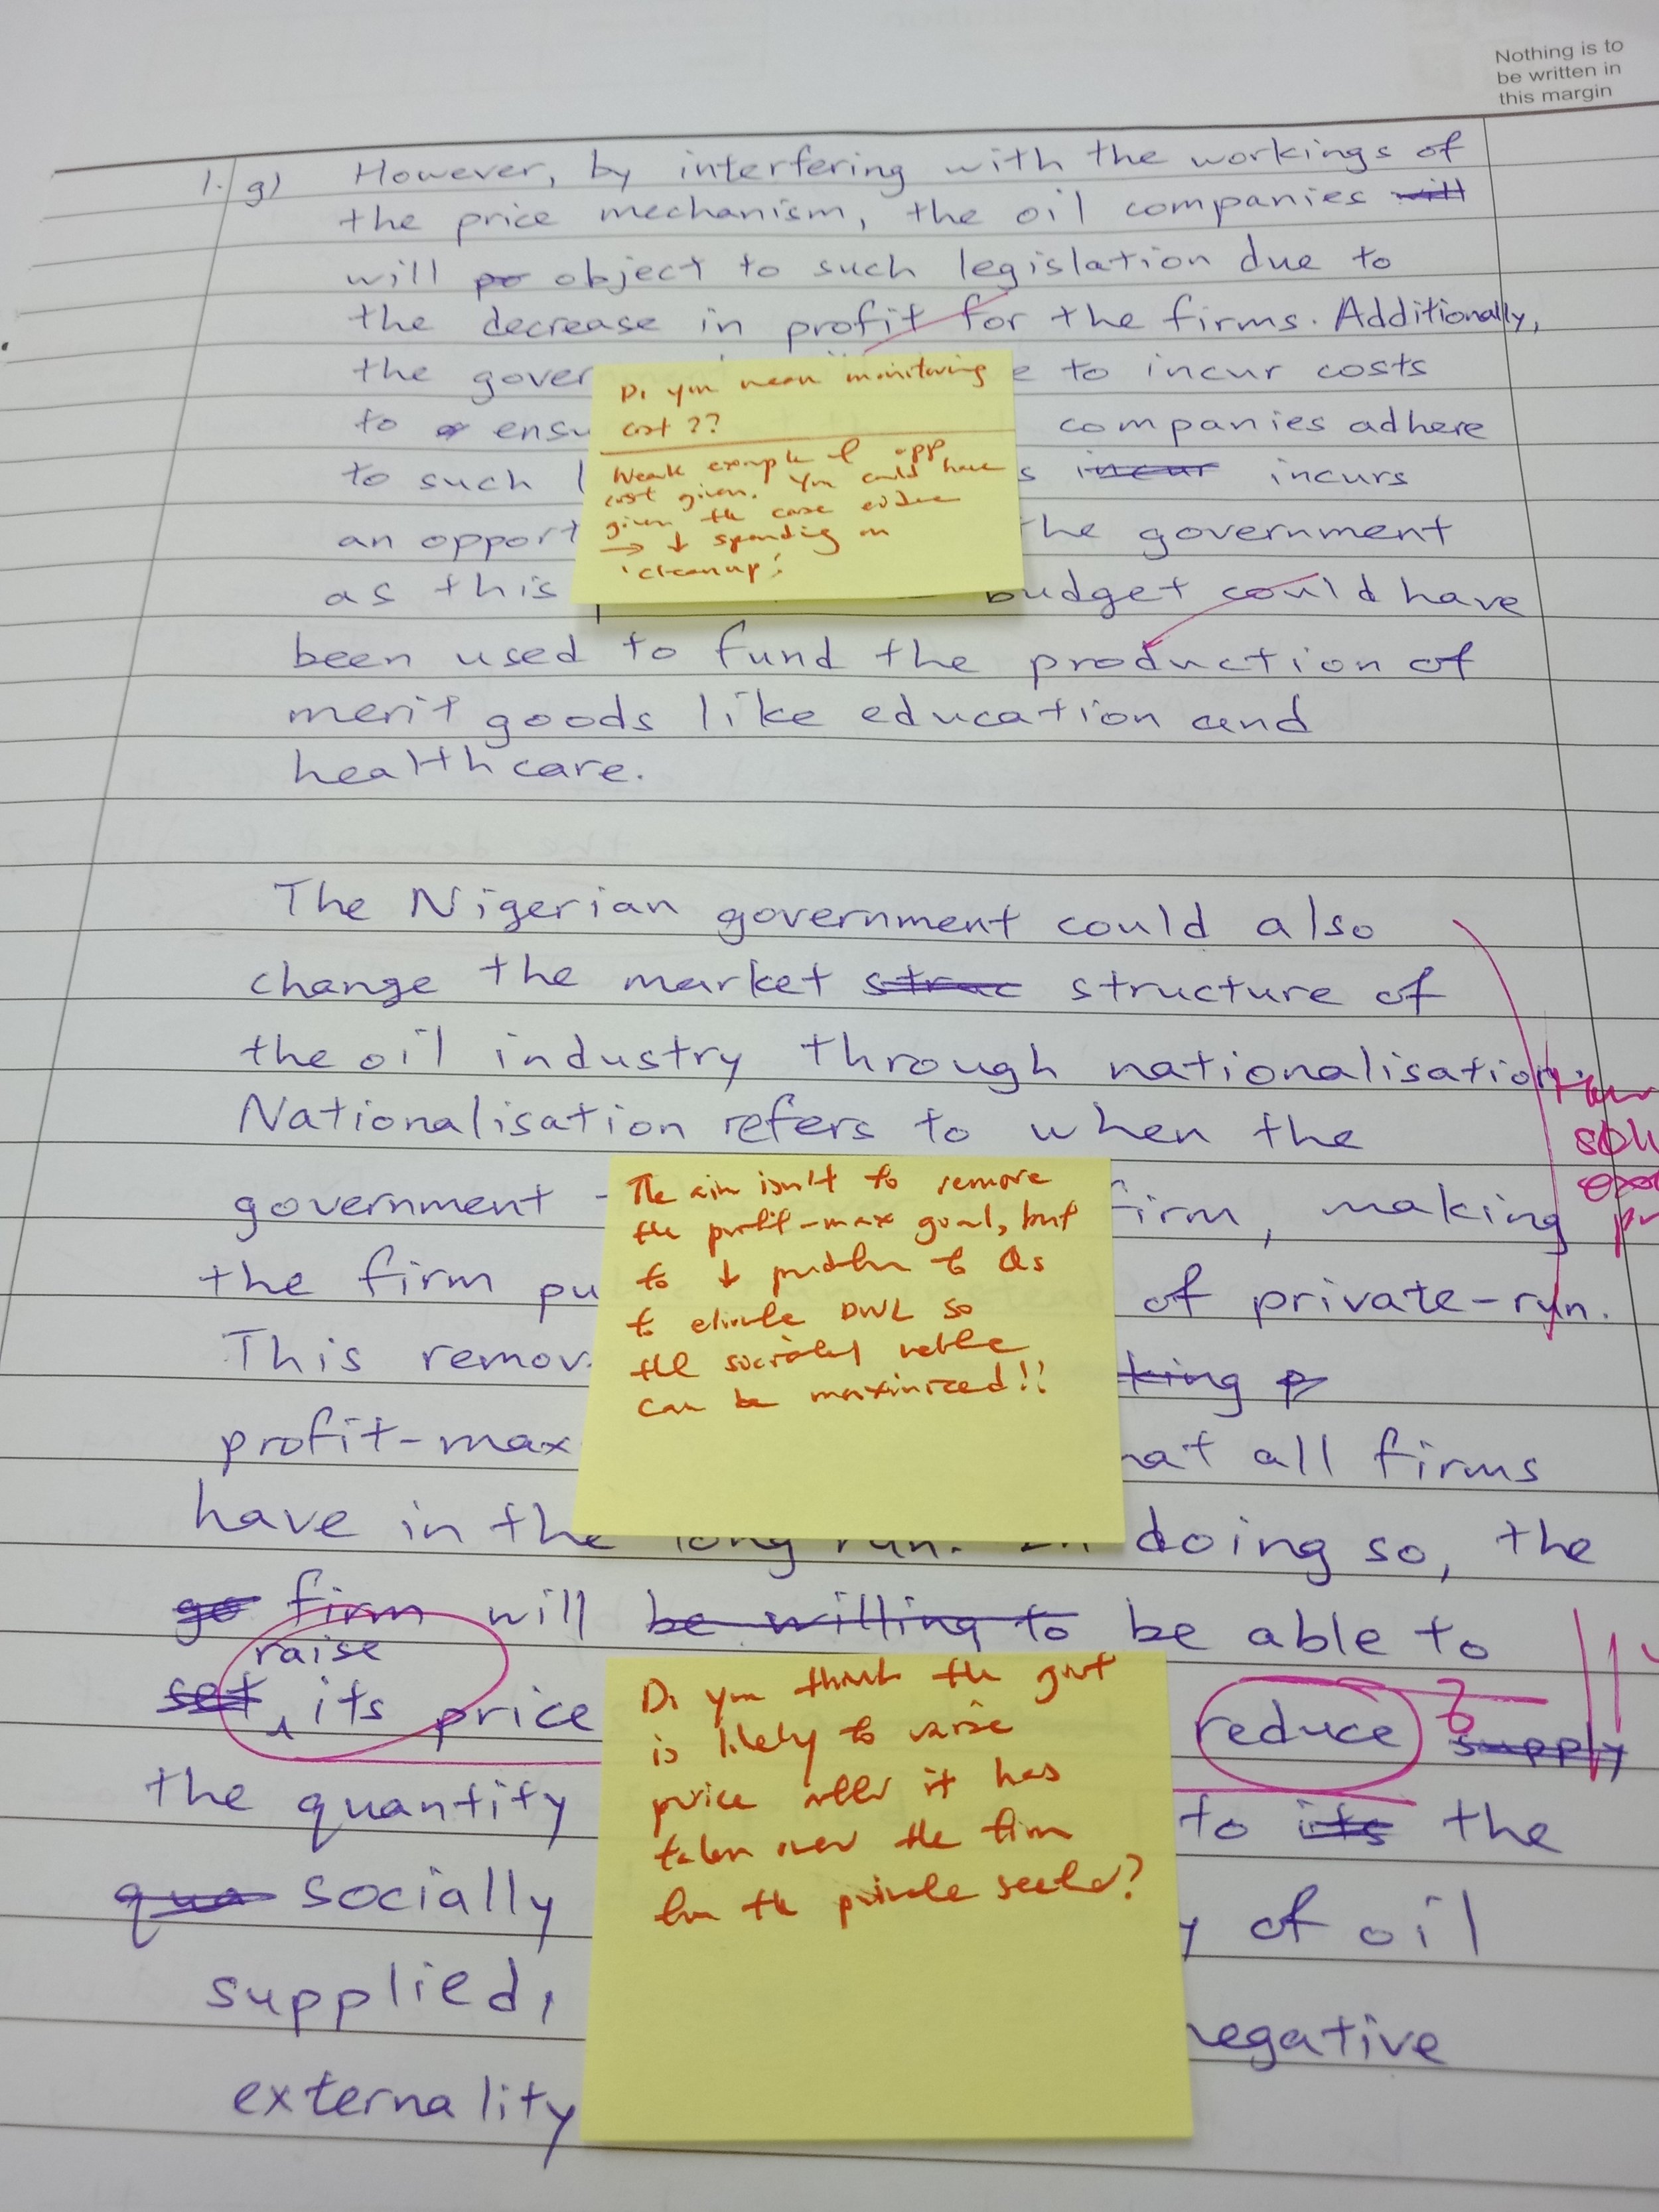 Nothing is to
be written in
this margin
1. g) However, by interfering with the workings of
the price mechanism, the oil companies will
will po object to such legislation due to
the decrease in profit for the firms. Additionally,
the gover e to incur costs
to ensu companies adhere
to such s incur incurs
an opport the government
as this budget could have
been used to fund the production of
merit goods like education and
healthcare.
Do you mean monitoring
cost ??
Weak example of opp
cost given. You could have
given the case evidence
→ ↓ spending on
'cleanup'.
The Nigerian government could also
change the market struc structure of
the oil industry through nationalisation.
Nationalisation refers to when the
government firm, making
the firm pu of private-run.
This remov king p
profit-max hat all firms
have in the long run. In doing so, the
go firm will be willing to be able to
set raise its price reduce supply
the quantity to its the
qua socially y of oil
supplied, negative
externality
The aim isn't to remove
the profit-max goal, but
to ↓ prodtn to Qs
to elimate DWL so
the societal welfare
can be maximized!!
Do you think the govt
is likely to raise
price after it has
taken over the firm
from the private sector?